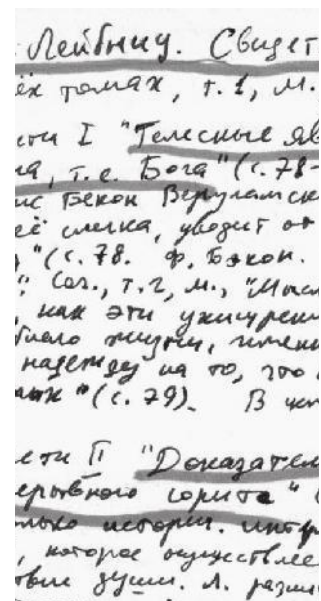 Лейбниц. Свидет
ёх томах, т. 1, М.
сти I "Телесные яв
на, т.е. Бога" (с. 78-
ис Бекон Веруламск
её слегка, уводит от
" (с. 78. Ф. Бэкон.
Соч., т. 2, М., "Мысл
, как эти ухищрени
было жизни, именн
надежду на то, что
" (с. 79). В
сти II "Доказател
ерывного сорита" (
олько истории. интер
, которое осуществляе
твии души. Л. разли